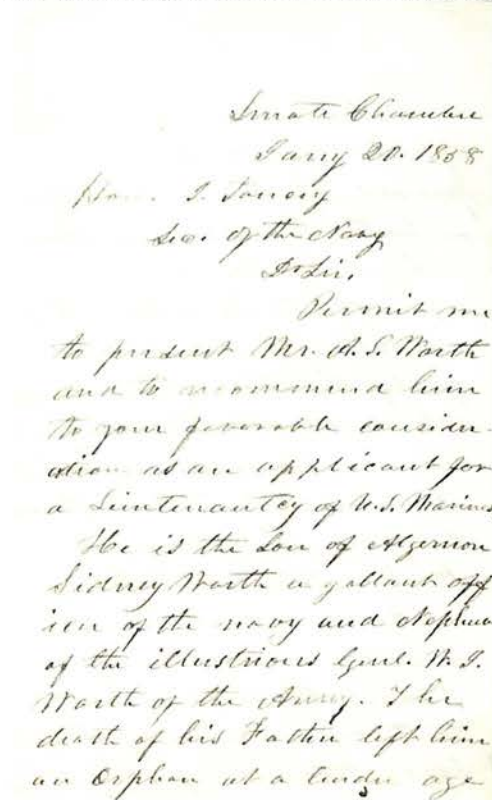 Senate Chamber
Jany 20. 1858
Hon. I. Toucey
Sec. of the Navy
Dr Sir,
Permit me
to present Mr. A. S. Worth
and to recommend him
to your favorable consider-
ation as an applicant for
a Lieutenantcy of U.S. Marines
He is the Son of Algernon
Sidney Worth a gallant off
icer of the navy and Nephew
of the illustrious Genl. W. J.
Worth of the Army. The
death of his Father left him
an Orphan at a tender age